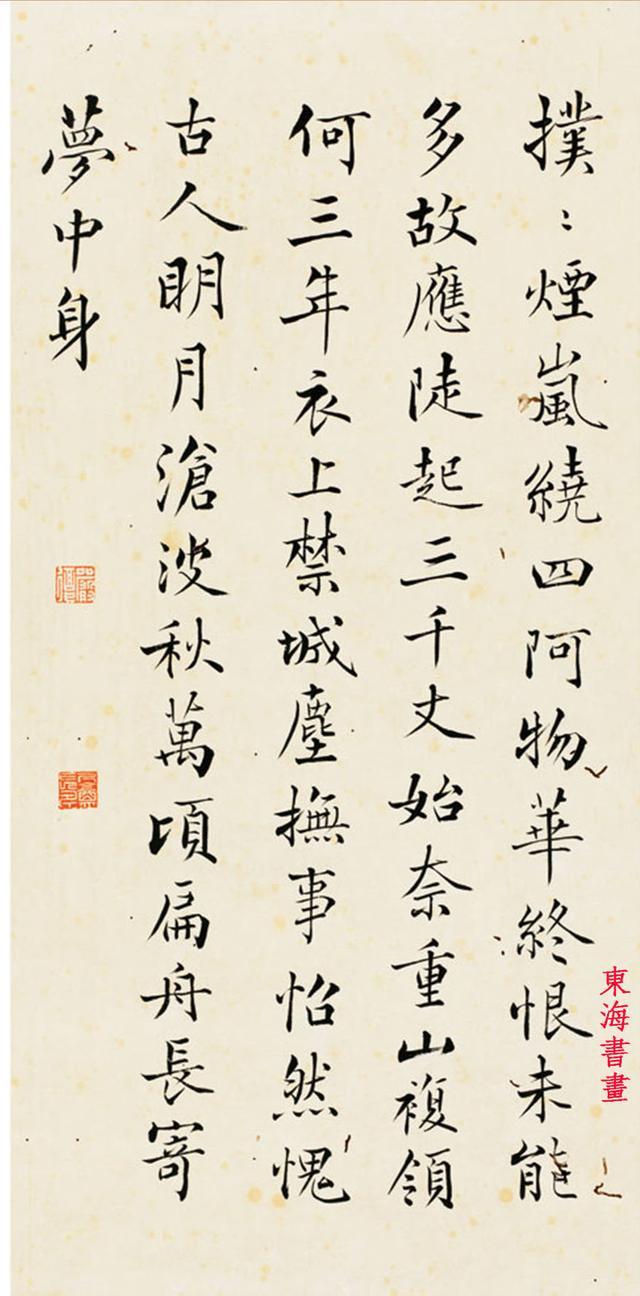 撲〻煙嵐繞四阿物華終恨未能
多故應陡起三千丈始奈重山複領
何三年衣上禁城塵撫事怡然愧
古人明月滄波秋萬頃扁舟長寄
夢中身
東海書畫